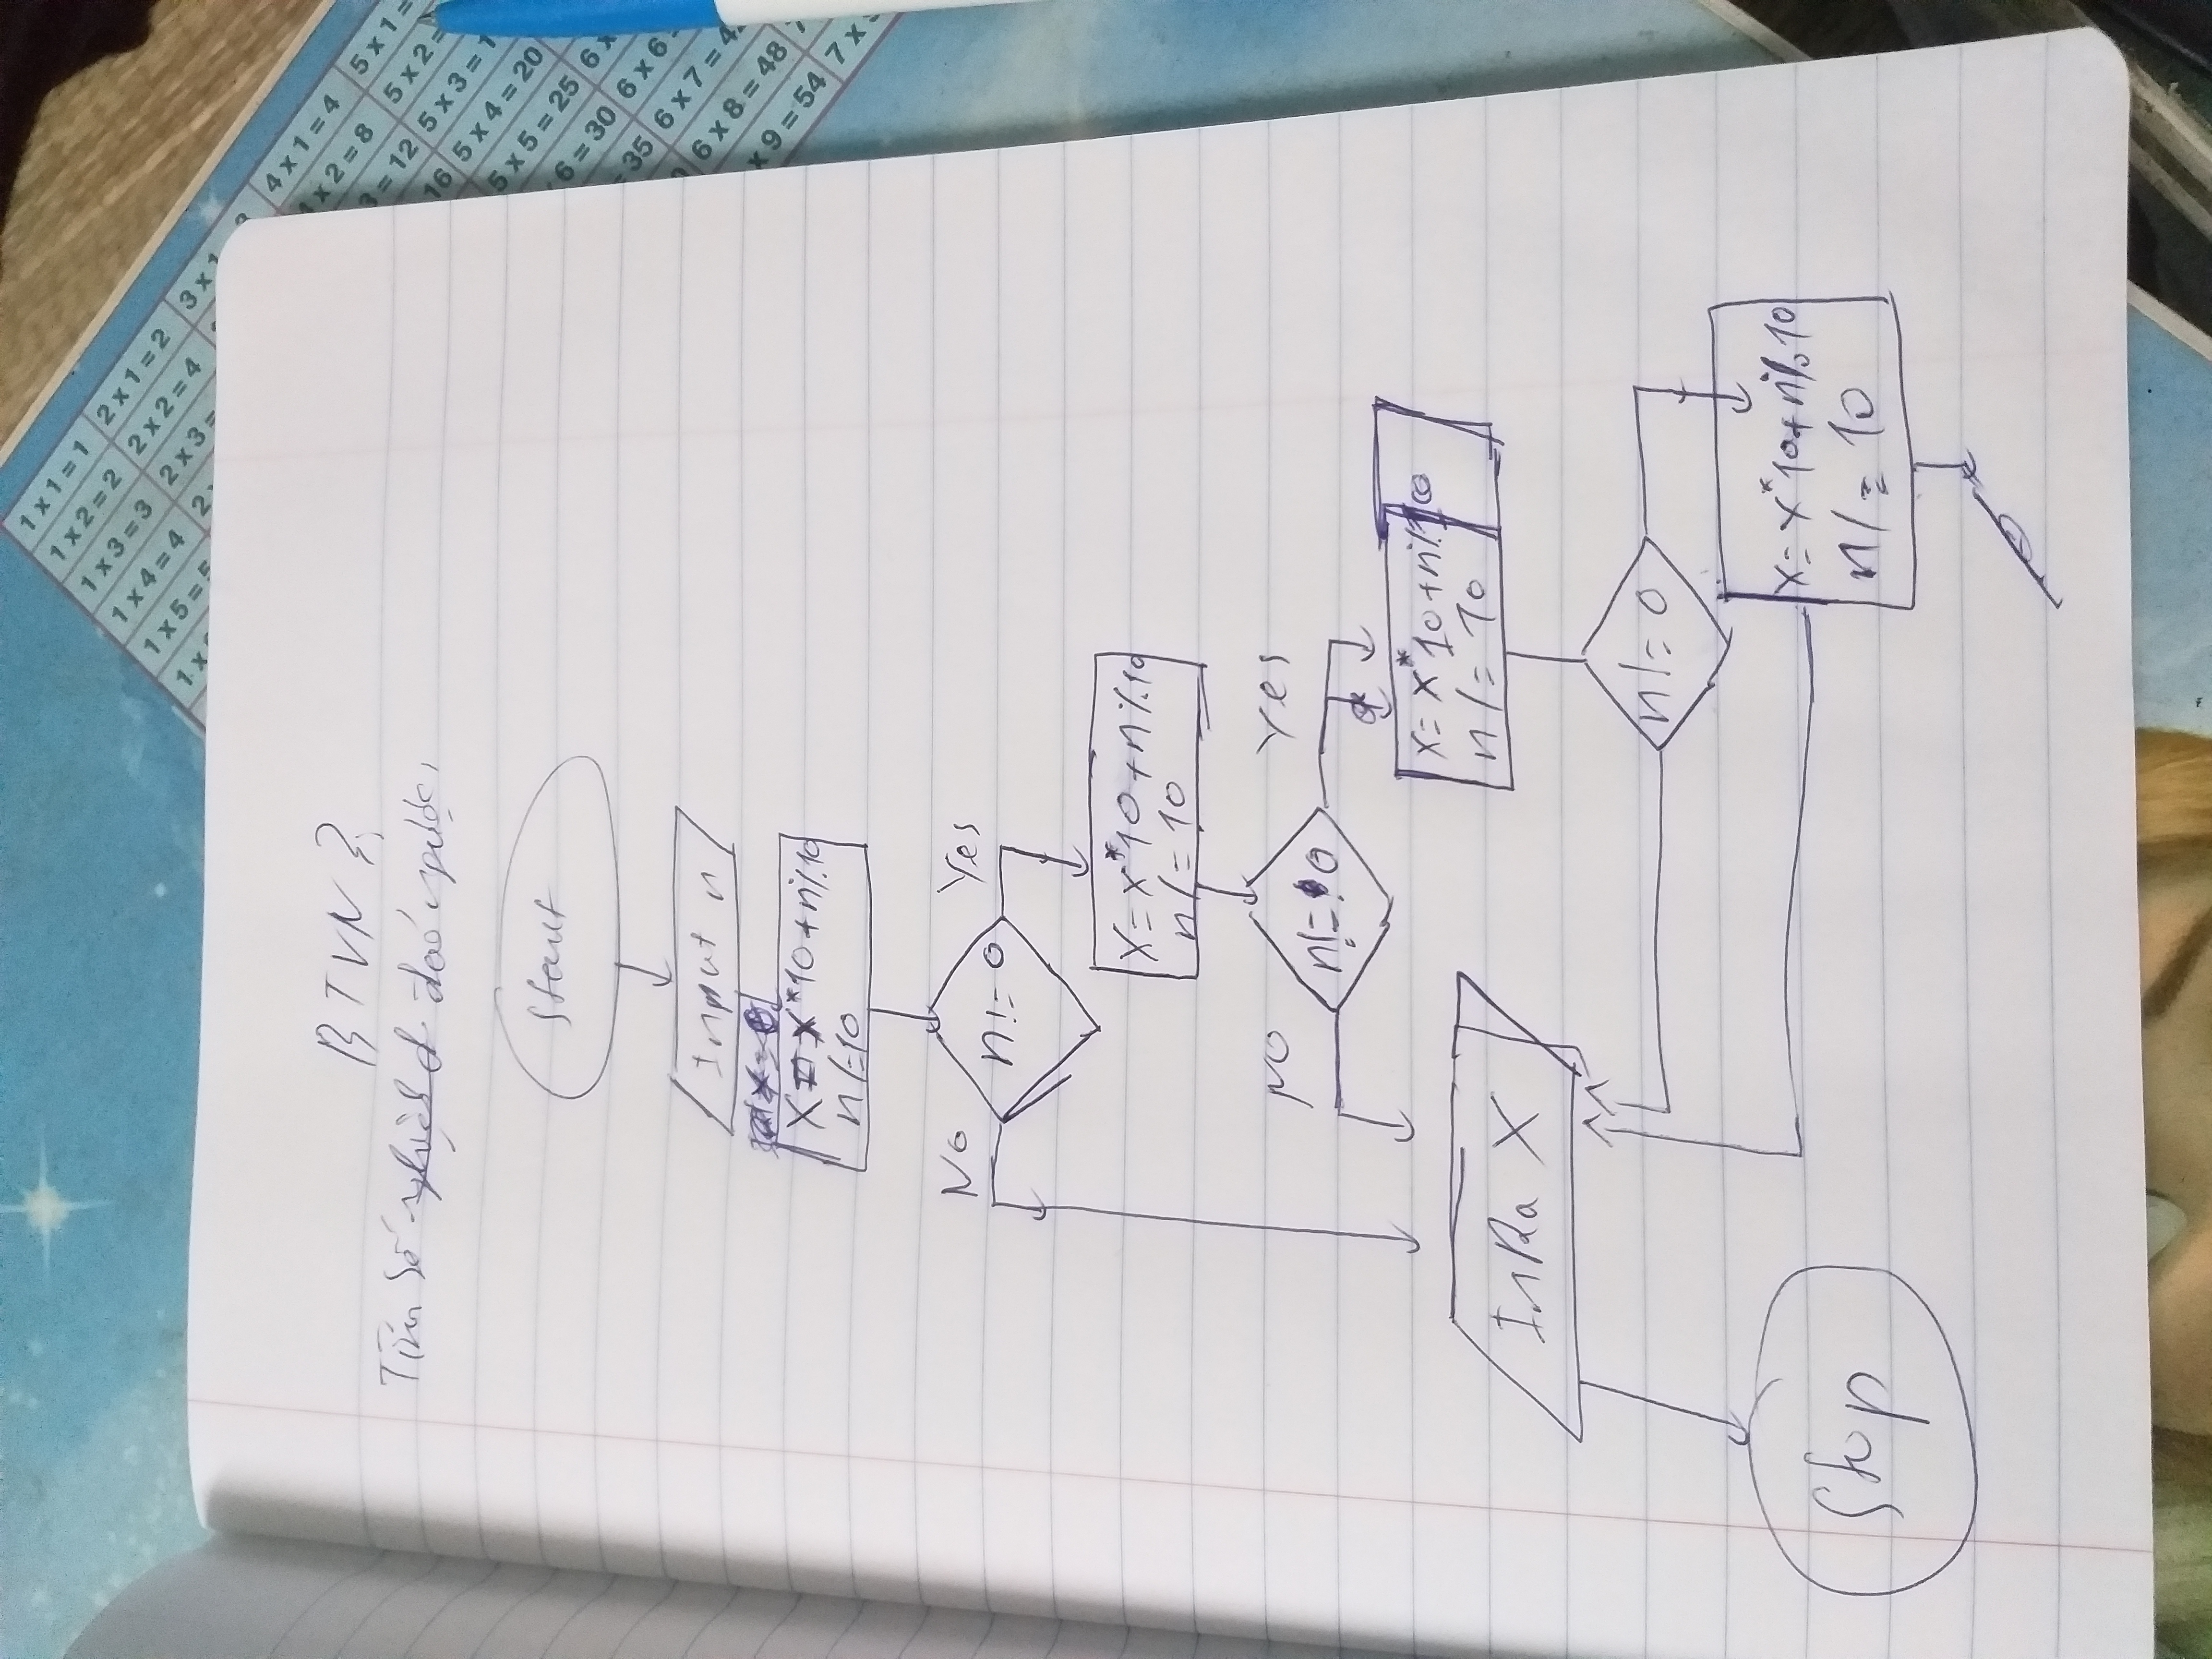 BTVN 3
Tìm số đảo ngược
Start
Input n
X = x*10+n%10
n/=10
No
Yes
n!=0
X=x*10+n%10
n/=10
NO
Yes
n!=0
X=x*10+n%10
n/=10
InRa X
n!=0
X=x*10+n%10
n/=10
Stop
1x1=1
1x2=2
1x3=3
1x4=4
1x5=5
2x1=2
2x2=4
2x3=
3x1
4x1=4
4x2=8
3=12
16
5x1=
5x2=
5x3=1
5x4=20
5x5=25
6=30
35
6x6
6x7=4
6x8=48
x9=54
7x